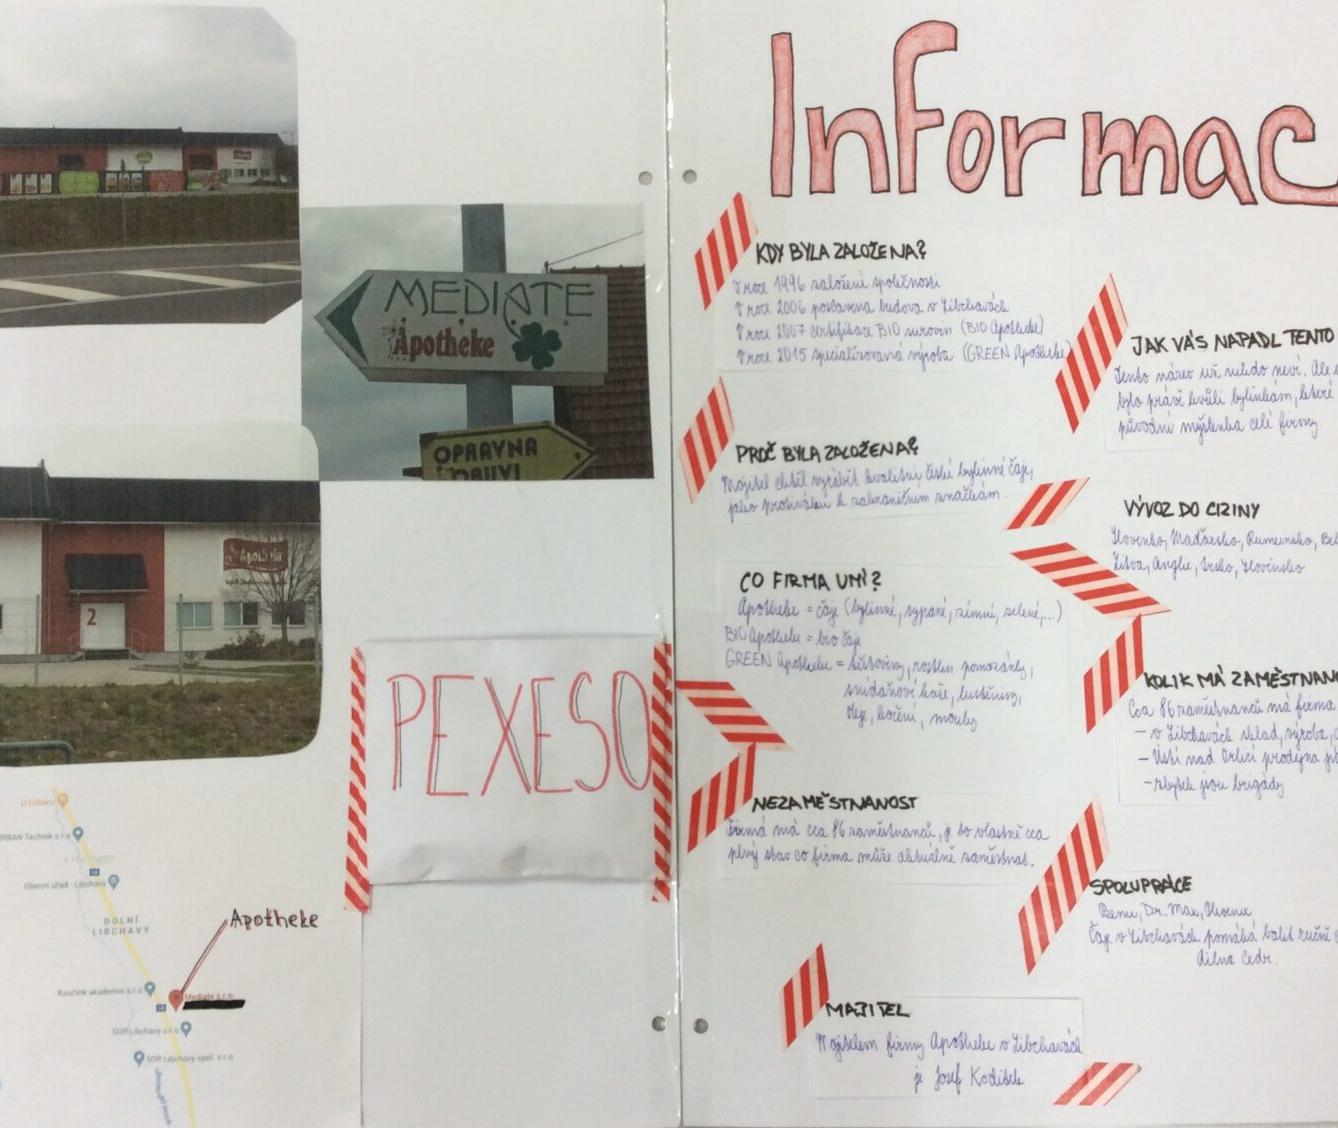 MEDIATE
Apotheke
OPRAVNA
OBUVI
Apotheke
2
PEXESO
U Džbánu
URBAN Technik s.r.o
Libchavy
Obecní úřad - Libchavy
DOLNÍ
LIBCHAVY
Apotheke
Koučink akademie s.r.o
Mediate s.r.o.
SOR Libchavy s.r.o
SOR Libchavy spol. s r.o
Informac
KDY BYLA ZALOŽENA?
V roce 1996 založení společnosti
V roce 2006 postavena budova v Libchavách
V roce 2007 certifikace BIO surovin (BIO Apotheke)
V roce 2015 specializovaná výroba (GREEN Apotheke)
PROČ BYLA ZALOŽENA?
Majitel chtěl vyrábět kvalitní české bylinné čaje,
jako protiváhu k zahraničním značkám.
CO FIRMA UMÍ?
Apotheke = čaje (bylinné, sypané, zimní, zelené,...)
BIO Apotheke = bio čaje
GREEN Apotheke = těstoviny, rostlin pomazánky,
snídaňové kaše, luštěniny,
oleje, koření, mouky
NEZAMĚSTNANOST
Firma má cca 86 zaměstnanců, je to vlastně cca
plný stav co firma může aktuálně zaměstnat.
MAJITEL
Majitelem firmy Apotheke v Libchavách
je Josef
JAK VÁS NAPADL TENTO
Tento název už nikdo neví. Ale
bylo právě kvůli bylinkám, které
původní myšlenka celé firmy.
VÝVOZ DO CIZINY
Slovensko, Maďarsko, Rumunsko,
Litva, Anglie, Irsko, Slovinsko
KOLIK MÁ ZAMĚSTNANC
Cca 86 zaměstnanců má firma
- v Libchavách sklad, výroba,
- Ústí nad Orlicí prodejna
- zbytek jsou brigády
SPOLUPRÁCE
Benu, Dr. Max,
Čaje v Libchavách pomáhá balit ručně
dílna Cedr.